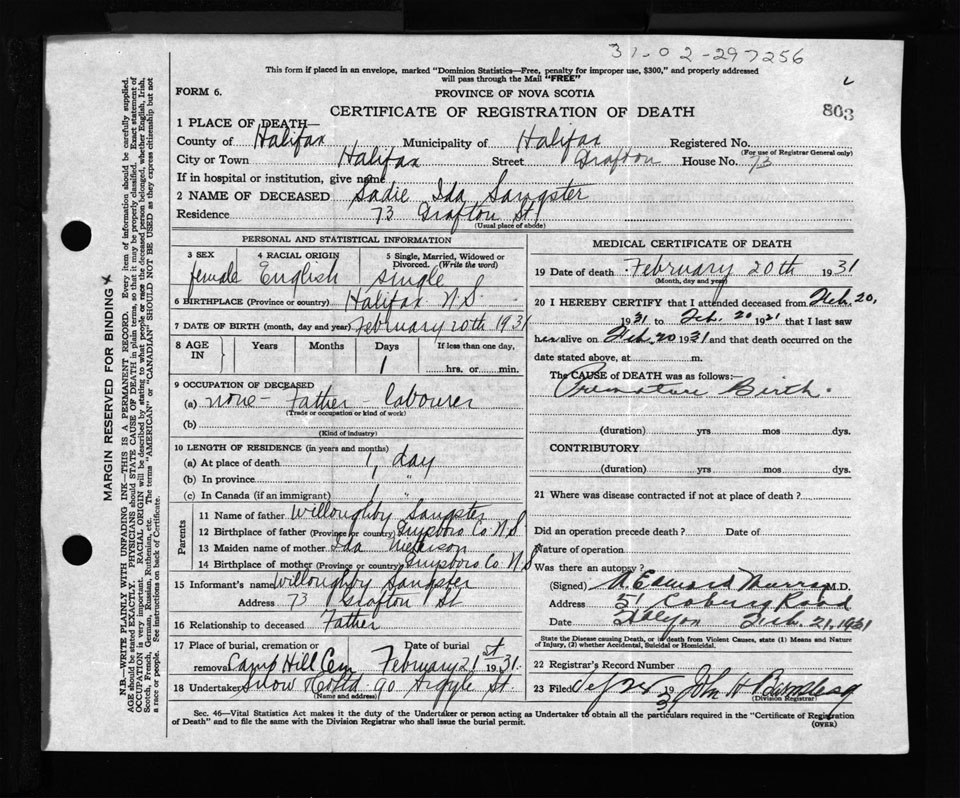 31-02-297256
This form if placed in an envelope, marked "Dominion Statistics—Free, penalty for improper use, $300," and properly addressed
will pass through the Mail "FREE"
FORM 6.
PROVINCE OF NOVA SCOTIA
803
CERTIFICATE OF REGISTRATION OF DEATH
1 PLACE OF DEATH—
County of Halifax Municipality of Halifax Registered No.
(For use of Registrar General only)
City or Town Halifax Street Grafton House No. 73
If in hospital or institution, give name
2 NAME OF DECEASED Sadie Ida Sangster
Residence 73 Grafton St.
(Usual place of abode)
PERSONAL AND STATISTICAL INFORMATION
3 SEX female
4 RACIAL ORIGIN English
5 Single, Married, Widowed or Divorced. (Write the word) single
6 BIRTHPLACE (Province or country) Halifax N.S.
7 DATE OF BIRTH (month, day and year) February 20th 1931
8 AGE IN Years Months Days If less than one day,
1 hrs. or min.
9 OCCUPATION OF DECEASED
(a) none - Father - Labourer
(Trade or occupation or kind of work)
(b)
(Kind of industry)
10 LENGTH OF RESIDENCE (in years and months)
(a) At place of death 1 day
(b) In province " "
(c) In Canada (if an immigrant) 1
Parents
11 Name of father Willoughby Sangster
12 Birthplace of father (Province or country) Guysboro Co. N.S
13 Maiden name of mother Ida
14 Birthplace of mother (Province or country) Guysboro Co. N.S
15 Informant's name Willoughby Sangster
Address 73 Grafton St
16 Relationship to deceased Father
17 Place of burial, cremation or Date of burial
removal Camp Hill Cem February 21st 1931
18 Undertaker Snow 90 Argyle St.
(Name and address)
MEDICAL CERTIFICATE OF DEATH
19 Date of death February 20th 1931
(Month, day and year)
20 I HEREBY CERTIFY that I attended deceased from Feb. 20,
1931 to Feb. 20 1931 that I last saw
her alive on Feb. 20 1931 and that death occurred on the
date stated above, at m.
The CAUSE of DEATH was as follows:—
Premature Birth.
(duration) yrs mos dys.
CONTRIBUTORY
(duration) yrs mos dys.
21 Where was disease contracted if not at place of death?
Did an operation precede death? Date of
Nature of operation
Was there an autopsy?
(Signed) Edward Murray M.D.
Address 51 Coburg Road
Date Feb. 21, 1931
State the Disease causing Death, or in death from Violent Causes, state (1) Means and Nature
of Injury, (2) whether Accidental, Suicidal or Homicidal.
22 Registrar's Record Number
23 Filed 19 31 John H
(Division Registrar)
Sec. 46—Vital Statistics Act makes it the duty of the Undertaker or person acting as Undertaker to obtain all the particulars required in the "Certificate of Registration
of Death" and to file the same with the Division Registrar who shall issue the burial permit.
(OVER)
MARGIN RESERVED FOR BINDING
N.B.—WRITE PLAINLY WITH UNFADING INK—THIS IS A PERMANENT RECORD. Every item of information should be carefully supplied.
AGE should be stated EXACTLY. PHYSICIANS should STATE CAUSE OF DEATH in plain terms, so that it may be properly classified. Exact statement of
OCCUPATION is very important. RACIAL ORIGIN will be described by stating to what people or race the deceased person belonged, whether English, Irish,
Scotch, French, German, Russian, Ruthenian, etc. The terms "AMERICAN" or "CANADIAN" SHOULD NOT BE USED as they express citizenship but not
a race or people. See instructions on back of Certificate.